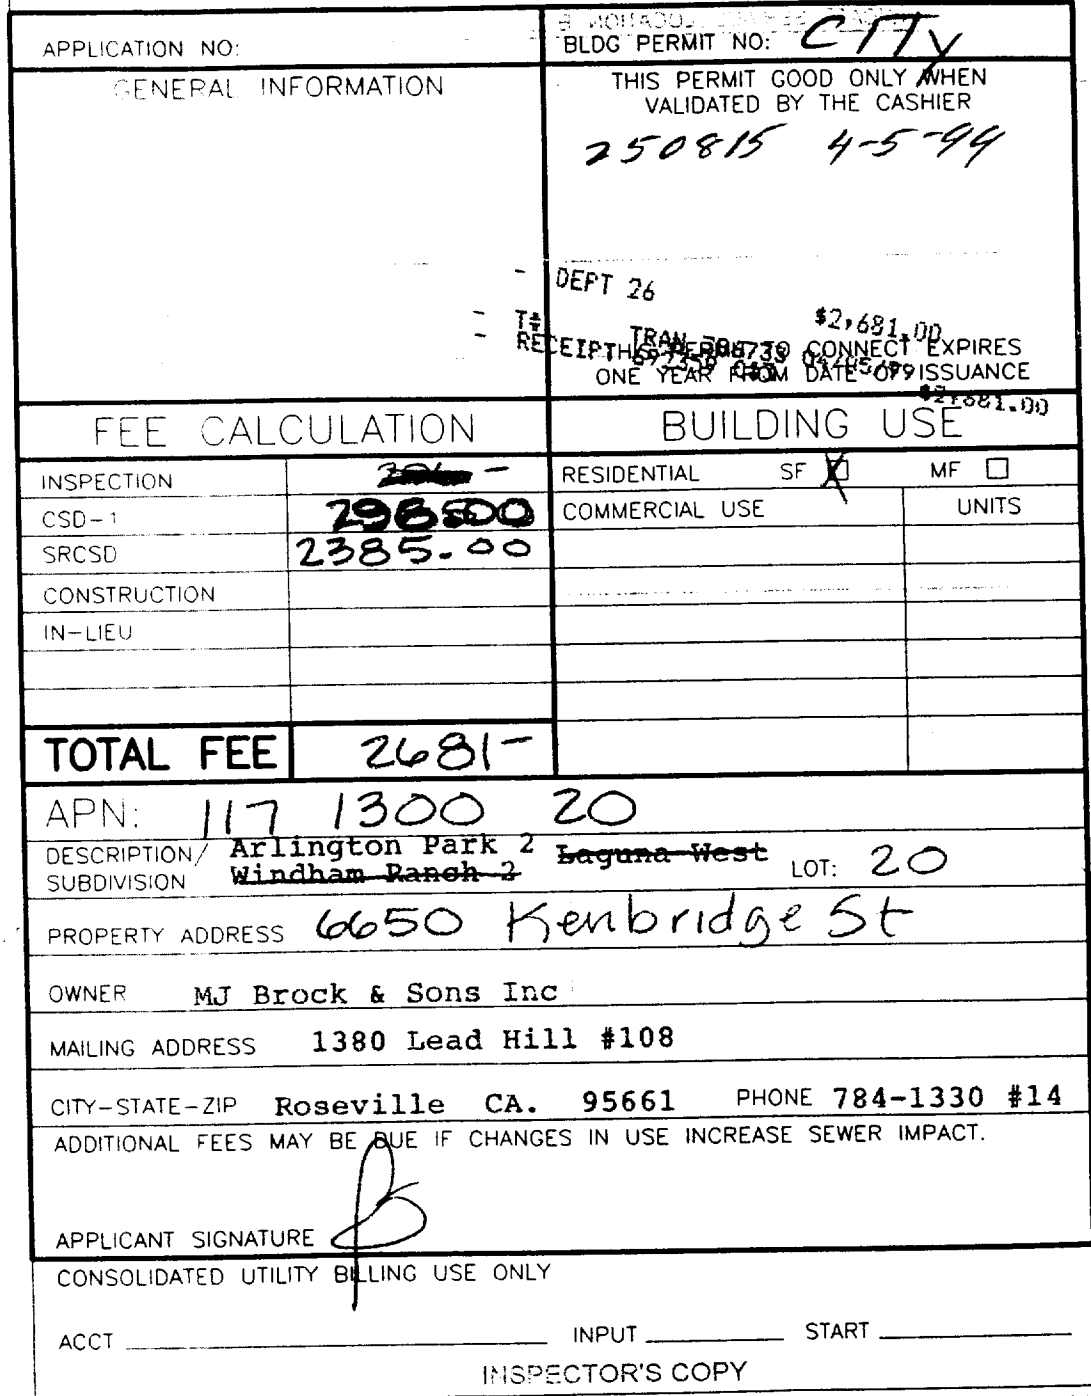 APPLICATION NO:
BLDG PERMIT NO: CITY
GENERAL INFORMATION
THIS PERMIT GOOD ONLY WHEN
VALIDATED BY THE CASHIER
250815 4-5-99
DEPT 26
$2,681.00
T#
TRAN
RECEIPT
THIS PERMIT TO CONNECT EXPIRES
ONE YEAR FROM DATE OF ISSUANCE
$2,681.00
FEE CALCULATION
BUILDING USE
INSPECTION
RESIDENTIAL SF MF
CSD-1
COMMERCIAL USE UNITS
SRCSD 2385.00
CONSTRUCTION
IN-LIEU
TOTAL FEE 2681-
APN: 117 1300 20
DESCRIPTION/ Arlington Park 2 Laguna West
SUBDIVISION Windham Ranch 2 LOT: 20
PROPERTY ADDRESS 6650 Kenbridge St
OWNER MJ Brock & Sons Inc
MAILING ADDRESS 1380 Lead Hill #108
CITY-STATE-ZIP Roseville CA. 95661 PHONE 784-1330 #14
ADDITIONAL FEES MAY BE DUE IF CHANGES IN USE INCREASE SEWER IMPACT.
APPLICANT SIGNATURE
CONSOLIDATED UTILITY BILLING USE ONLY
ACCT INPUT START
INSPECTOR'S COPY